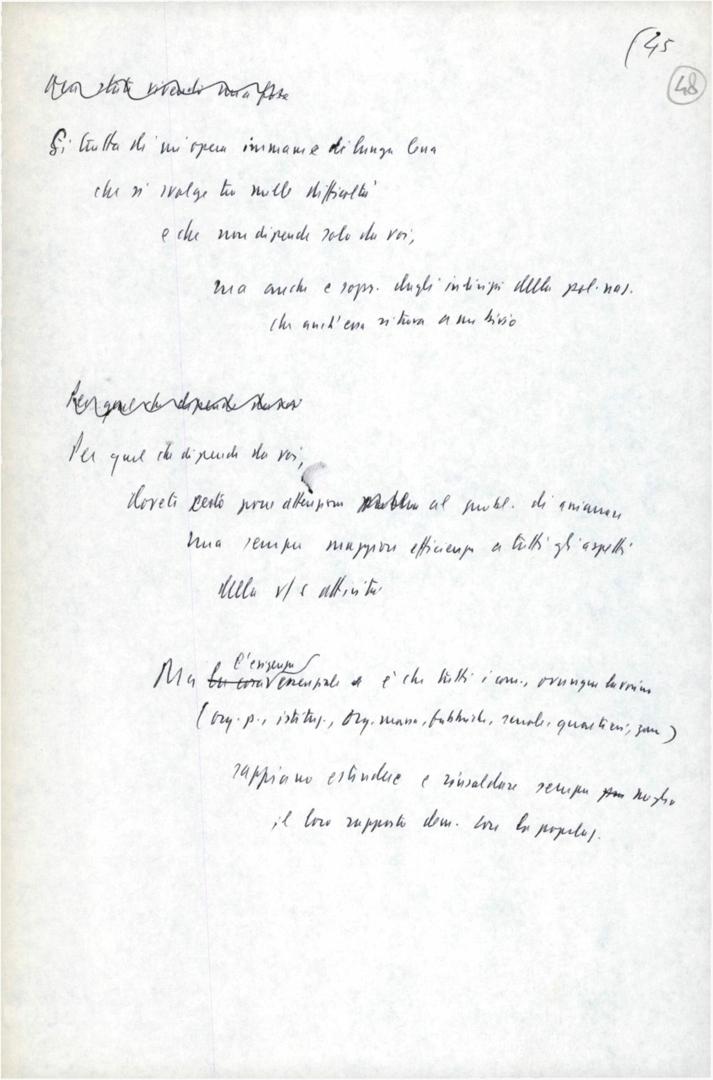 (45
48
Ora state vivendo una fase
Si tratta di un'opera immane e di lunga lena
che si svolge tra mille difficoltà
e che non dipende solo da voi,
ma anche e sopr. dagli indirizzi della pol. naz.
che anch'essa si trova a un bivio
Per quel che dipende da voi
Per quel che dipende da voi,
dovete certo porre attenzione al probl. di assicurare
una sempre maggiore efficienza a tutti gli aspetti
della v/s attività
l'esigenza
Ma la cosa essenziale è che tutti i com., ovunque lavorino
(org. p., istituz., org. massa, fabbriche, scuole, quartieri, zone)
sappiano estendere e rinsaldare sempre più meglio
il loro rapporto dem. con la popolaz.